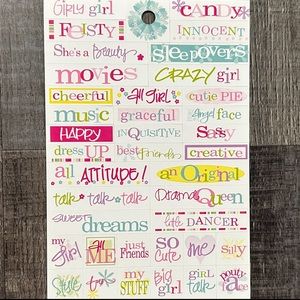 Girly girl CANDY
FEISTY INNOCENT
She's a Beauty sleepovers
movies CRAZY girl
cheerful All Girl cutie PIE
music graceful Angel face
HAPPY INQUISITIVE Sassy
dress UP best friends creative
all ATTITUDE! an Original
talk talk talk Drama Queen
sweet dreams little DANCER
my girl All ME just Friends SO cute me Silly
Style my STUFF Big girl girl talk Pouty face